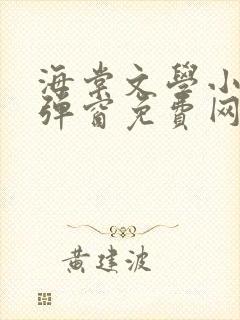 海棠文學小
彈窗免費网
黃建波